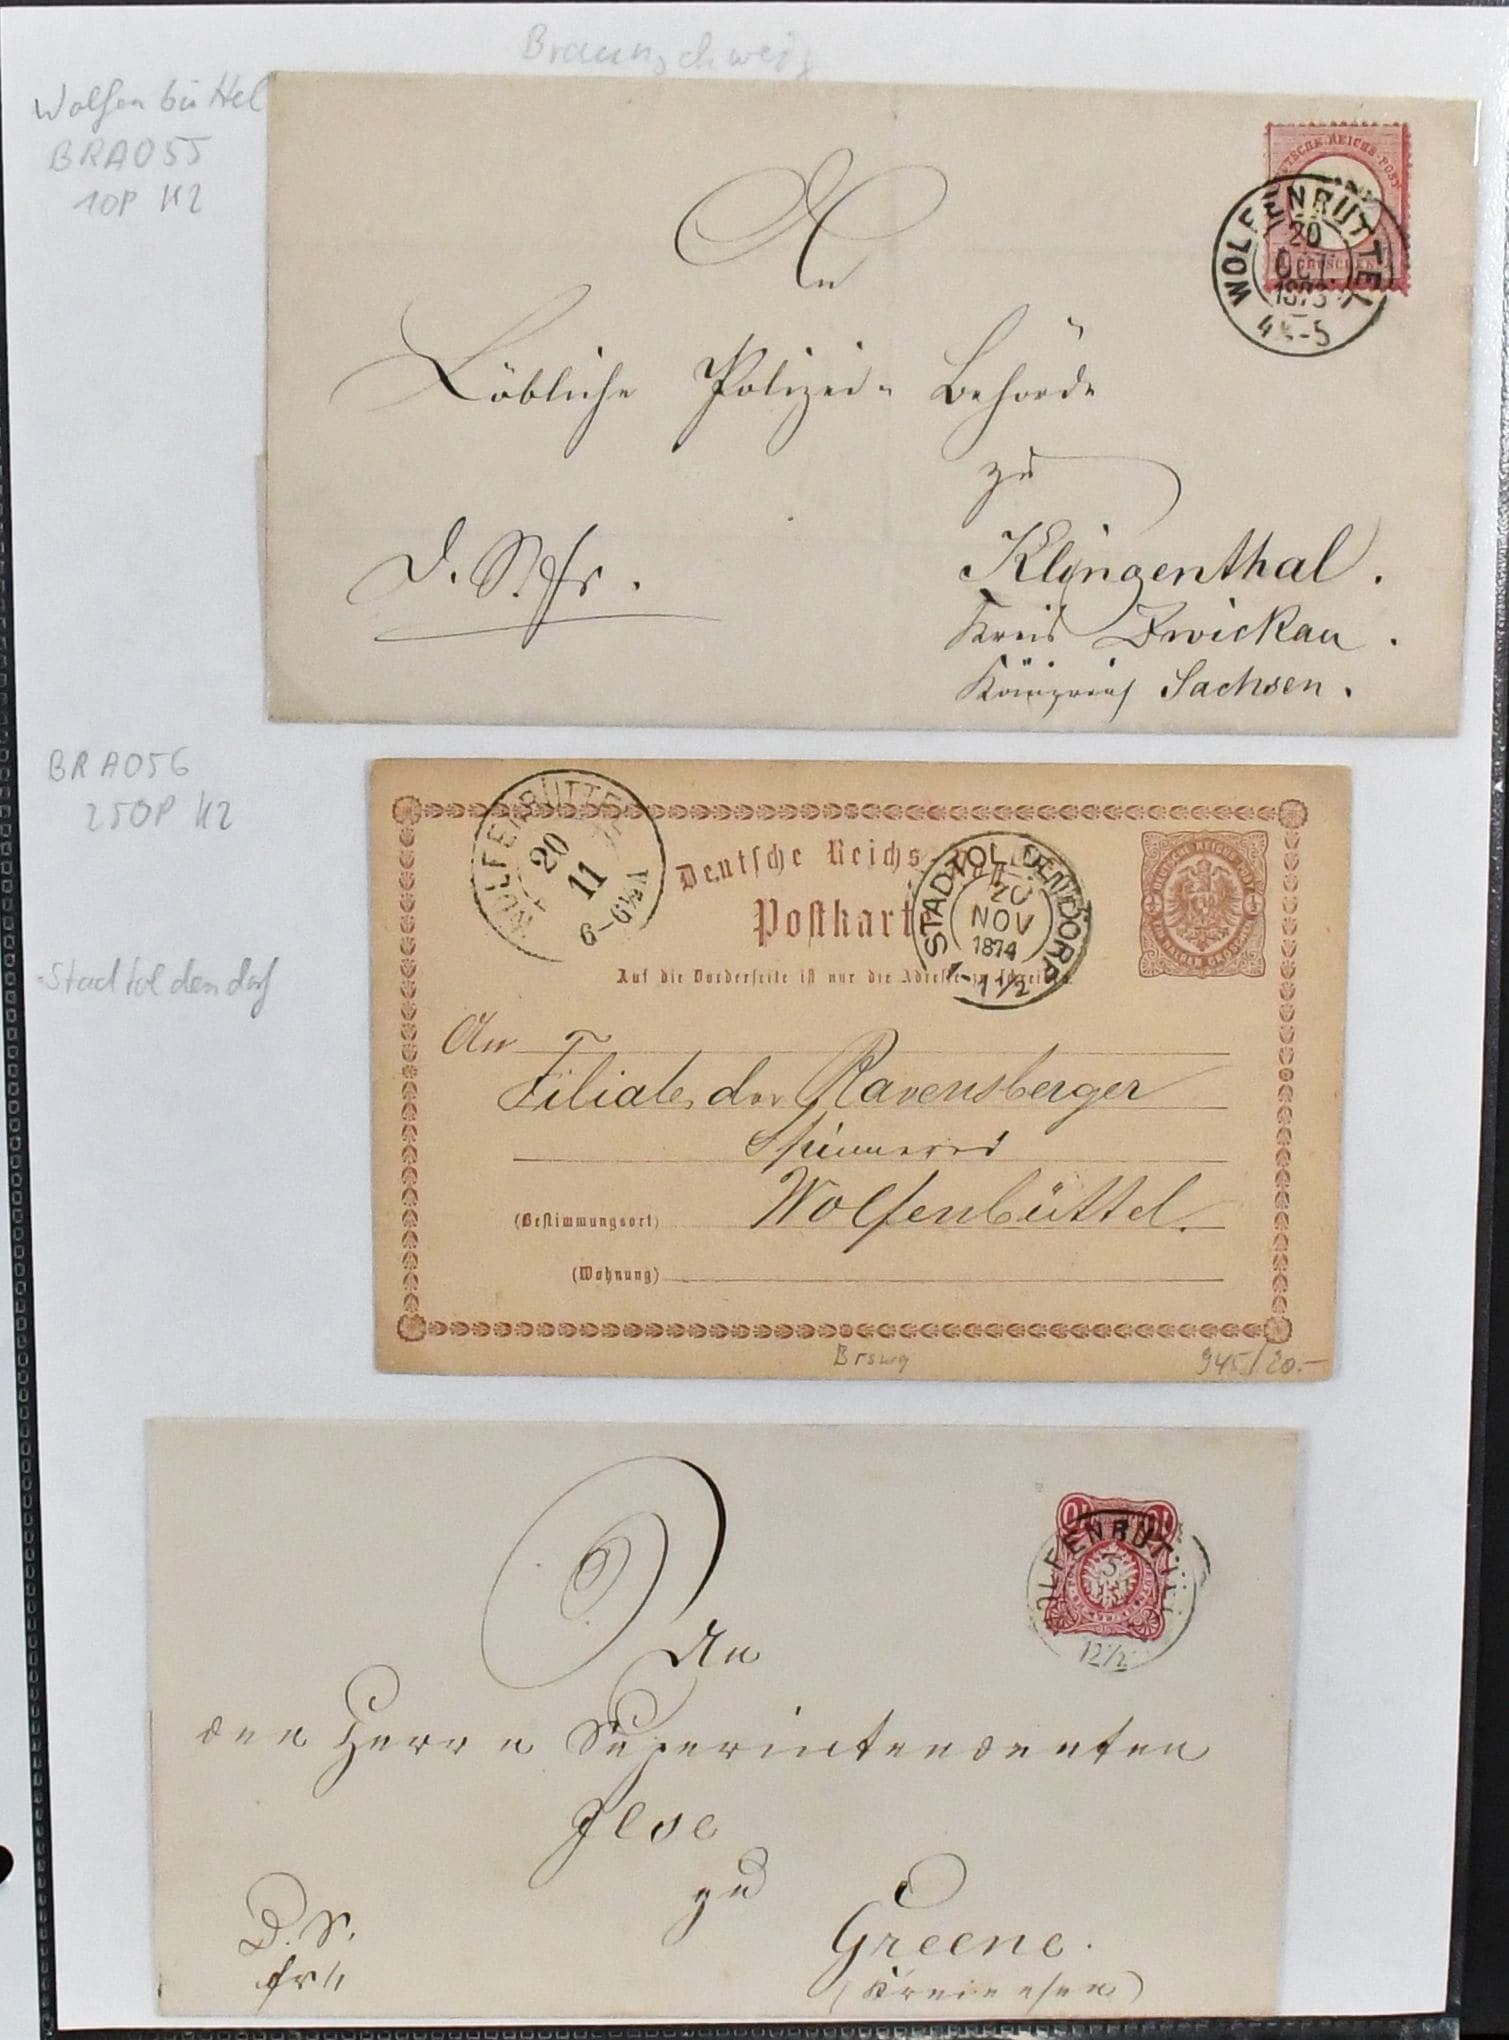 Braunschweig
Wolfenbüttel
BRA055
10P K2
DEUTSCHE REICHS-POST
WOLFENBÜTTEL
20
OCT.
1873
4½-5
An
Löbliche Polizei-Behörde
zu
Klingenthal.
Kreis Zwickau.
Königreich Sachsen.
BRA056
250P K2
Stadtoldendorf
WOLFENBÜTTEL
20
11
6-6½A
Deutsche Reichs-Post
Postkarte
STADTOLDENDORF
20
NOV
1874
1-1½
Auf die Vorderseite ist nur die Adresse zu schreiben.
DEUTSCHE REICHS-POST
EIN HALBER GROSCHEN
An
Filiale der Ravensberger
Spinnerei
(Bestimmungsort) Wolfenbüttel.
(Wohnung)
Brswg
945/20.-
10 10
WOLFENBÜTT
3
12½
An
den Herrn Superintendenten
Ilse
zu
D. S.
Greene.
(Kreiensen)